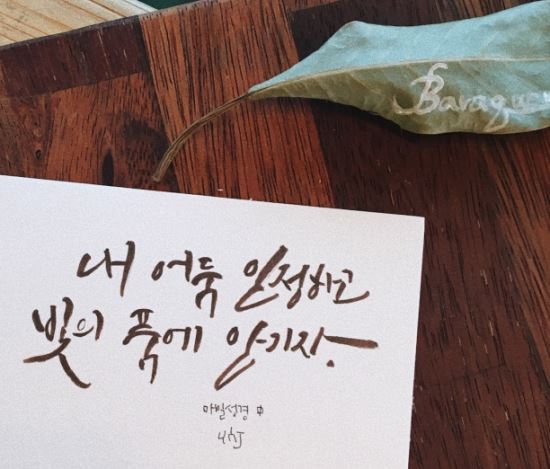 내 어둠 인정하고
빛의 품에 안기자.
매일성경 中